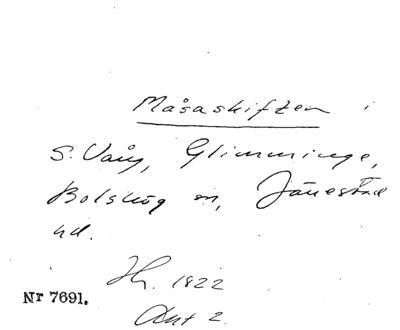 Måsaskiften i
S. Vång, Glimminge,
Bolshög m, Jänestad
hd.
Hr. 1822
Nr 7691.
Akt 2.